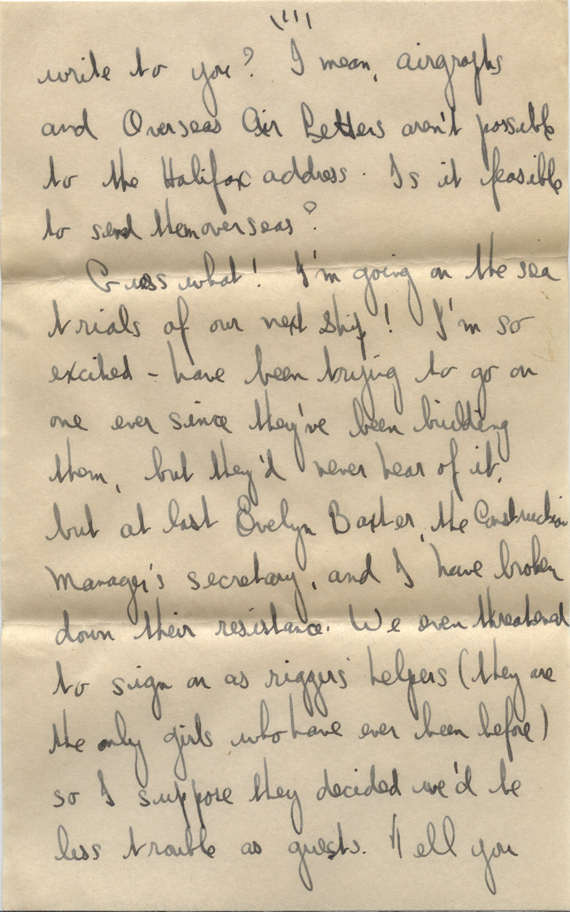 write to you? I mean, airgraphs
and Overseas Air Letters aren't possible
to the Halifax address. Is it feasible
to send them overseas?
Guess what! I'm going on the sea
trials of our next ship! I'm so
excited - have been trying to go on
one ever since they've been building
them, but they'd never hear of it,
but at last Evelyn Baxter, the Construction
Manager's secretary, and I have broken
down their resistance. We even threatened
to sign on as riggers' helpers (they are
the only girls who have ever been before)
so I suppose they decided we'd be
less trouble as guests. Tell you